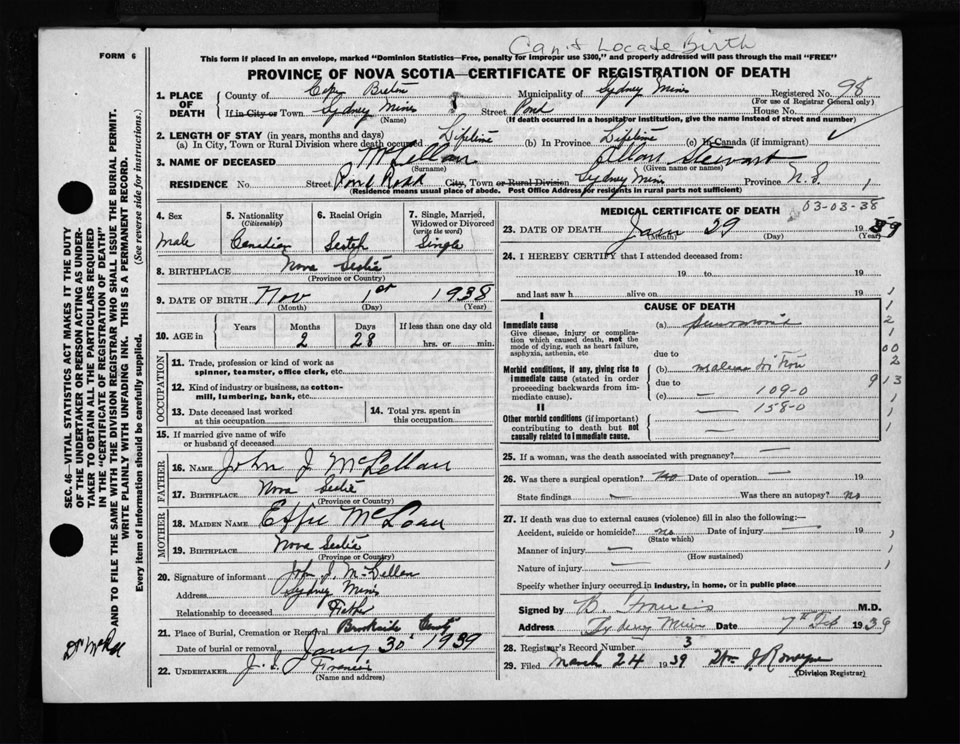 Can't Locate Birth
FORM 6
This form if placed in an envelope, marked "Dominion Statistics—Free, penalty for improper use $300," and properly addressed will pass through the mail "FREE"
PROVINCE OF NOVA SCOTIA—CERTIFICATE OF REGISTRATION OF DEATH
1. PLACE OF DEATH
County of Cape Breton Municipality of Sydney Mines Registered No. 98
(For use of Registrar General only)
If in City or Town Sydney Mines Street Pond House No.
(Name) (If death occurred in a hospital or institution, give the name instead of street and number)
2. LENGTH OF STAY (in years, months and days)
(a) In City, Town or Rural Division where death occurred Lifetime (b) In Province Lifetime (c) In Canada (if immigrant)
3. NAME OF DECEASED McLellan Allan Stewart
(Surname) (Given name or names)
RESIDENCE No. Street Pond Road City, Town or Rural Division Sydney Mines Province N.S. 1
(Residence means usual place of abode. Post Office Address for residents in rural parts not sufficient)
4. Sex 5. Nationality 6. Racial Origin 7. Single, Married, Widowed or Divorced
(Citizenship) (write the word)
Male Canadian Scotch Single
8. BIRTHPLACE Nova Scotia
(Province or Country)
9. DATE OF BIRTH Nov 1st 1938
(Month) (Day) (Year)
10. AGE in Years Months Days If less than one day old
2 28 hrs. or min.
OCCUPATION
11. Trade, profession or kind of work as spinner, teamster, office clerk, etc.
12. Kind of industry or business, as cotton-mill, lumbering, bank, etc.
13. Date deceased last worked at this occupation 14. Total yrs. spent in this occupation
15. If married give name of wife or husband of deceased
FATHER
16. NAME John J McLellan
17. BIRTHPLACE Nova Scotia
(Province or Country)
MOTHER
18. MAIDEN NAME Effie McLean
19. BIRTHPLACE Nova Scotia
(Province or Country)
20. Signature of informant John J McLellan
Address Sydney Mines
Relationship to deceased Father
21. Place of Burial, Cremation or Removal Brookside Cemty
Date of burial or removal Jany 30 1939
22. UNDERTAKER J. J. Francis
(Name and address)
MEDICAL CERTIFICATE OF DEATH 03-03-38
23. DATE OF DEATH Jan 29 19 39
(Month) (Day) (Year)
24. I HEREBY CERTIFY that I attended deceased from:
19 to 19
and last saw h alive on 19
CAUSE OF DEATH
I
Immediate cause
Give disease, injury or complication which caused death, not the mode of dying, such as heart failure, asphyxia, asthenia, etc
(a) Pneumonia
due to
Morbid conditions, if any, giving rise to immediate cause (stated in order proceeding backwards from immediate cause).
(b)
due to
(c) 109-0
158-0
II
Other morbid conditions (if important) contributing to death but not causally related to immediate cause.
1
1
2
1
00
2
9 13
1
1
1
25. If a woman, was the death associated with pregnancy?
26. Was there a surgical operation? No Date of operation 19
State findings Was there an autopsy? no
27. If death was due to external causes (violence) fill in also the following:—
Accident, suicide or homicide? no Date of injury 19
(State which)
Manner of injury
(How sustained)
Nature of injury
Specify whether injury occurred in industry, in home, or in public place
Signed by B. Francis M.D.
Address Sydney Mines Date 7th Feb 1939
28. Registrar's Record Number 3
29. Filed March 24 1939
(Division Registrar)
SEC. 46—VITAL STATISTICS ACT MAKES IT THE DUTY
OF THE UNDERTAKER OR PERSON ACTING AS UNDER-
TAKER TO OBTAIN ALL THE PARTICULARS REQUIRED
IN THE "CERTIFICATE OF REGISTRATION OF DEATH"
AND TO FILE THE SAME WITH THE DIVISION REGISTRAR WHO SHALL ISSUE THE BURIAL PERMIT.
WRITE PLAINLY WITH UNFADING INK. THIS IS A PERMANENT RECORD.
Every item of information should be carefully supplied. (See reverse side for instructions.)